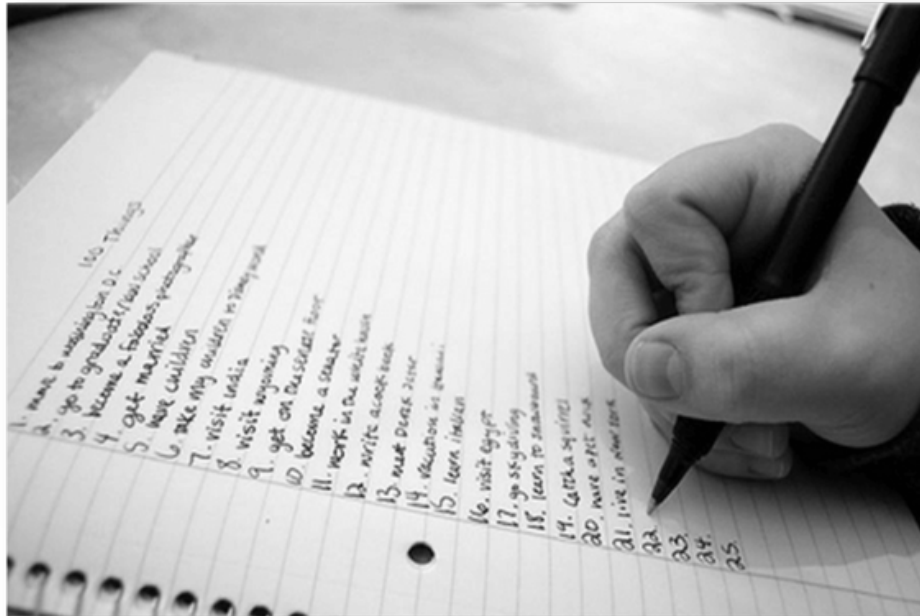 100 Things
1. move to washington D.C
2. go to graduate/law school
3. become a fabulous photographer
4. get married
5. have children
6. take my children to disney world
7. visit India
8. visit wyoming
9. get on the senate floor
10. become a senator
11. work in the white house
12. write a cook book
13. meet Derek Jeter
14. vacation in
15. learn italian
16. visit egypt
17. go skydiving
18. learn to snowboard
19. catch a squirrel
20. have a pet
21. live in new york
22.
23.
24.
25.